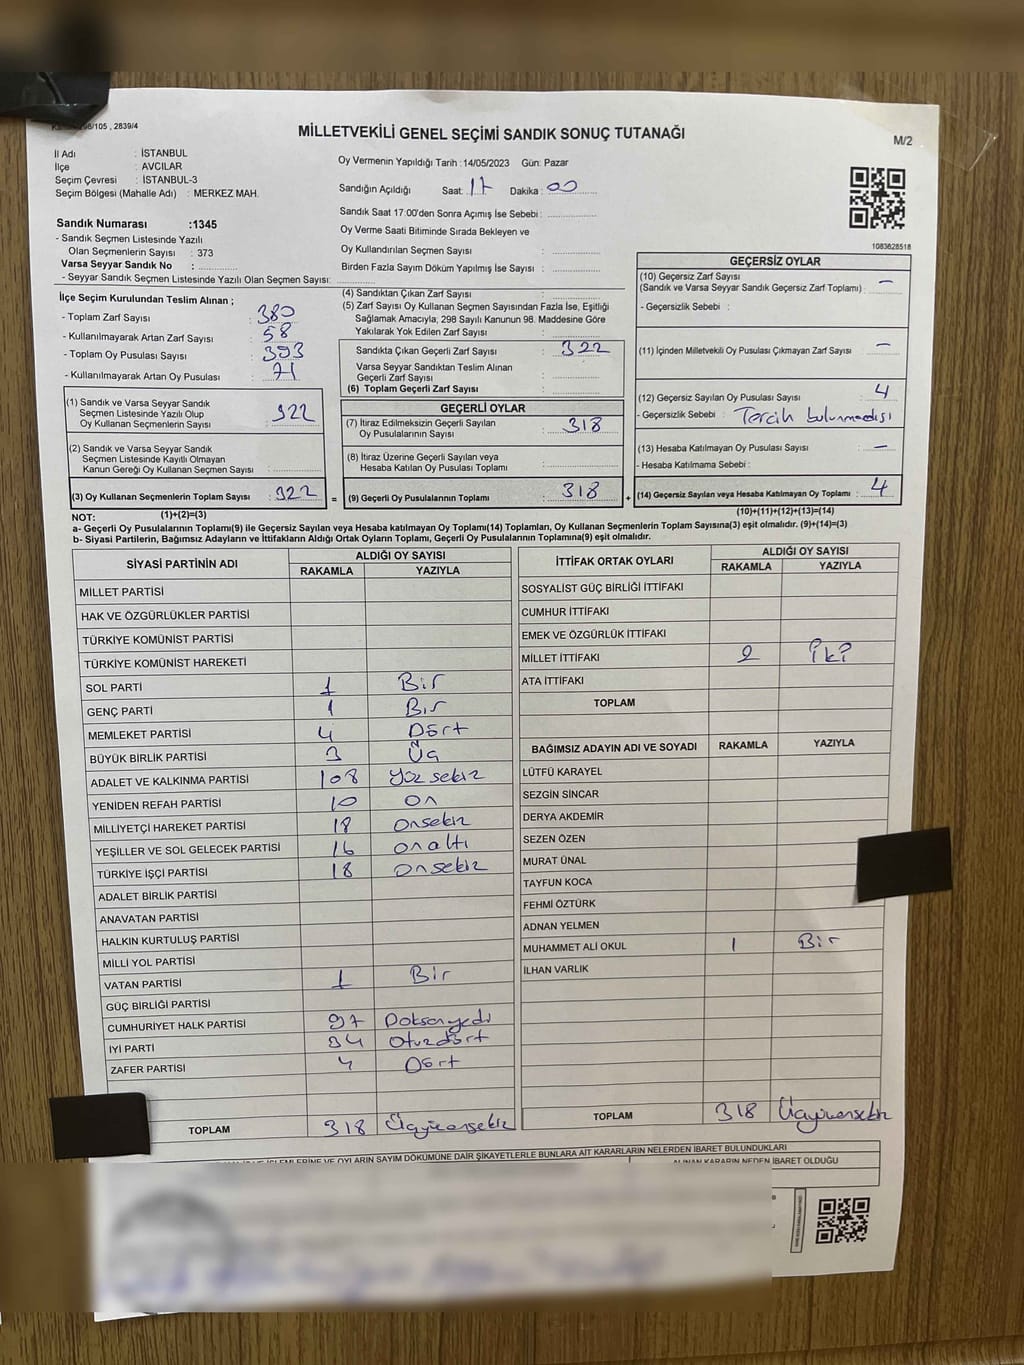 MİLLETVEKİLİ GENEL SEÇİMİ SANDIK SONUÇ TUTANAĞI
M/2
/105 , 2839/4
İl Adı : İSTANBUL
İlçe : AVCILAR
Seçim Çevresi : İSTANBUL-3
Seçim Bölgesi (Mahalle Adı) : MERKEZ MAH.
Oy Vermenin Yapıldığı Tarih :14/05/2023 Gün: Pazar
Sandığın Açıldığı Saat: 17 Dakika : 00
Sandık Saat 17:00'den Sonra Açımış İse Sebebi :
Oy Verme Saati Bitiminde Sırada Bekleyen ve
Oy Kullandırılan Seçmen Sayısı :
Birden Fazla Sayım Döküm Yapılmış İse Sayısı :
1083628518
Sandık Numarası :1345
- Sandık Seçmen Listesinde Yazılı
Olan Seçmenlerin Sayısı : 373
Varsa Seyyar Sandık No :
- Seyyar Sandık Seçmen Listesinde Yazılı Olan Seçmen Sayısı:
İlçe Seçim Kurulundan Teslim Alınan ;
- Toplam Zarf Sayısı : 380
- Kullanılmayarak Artan Zarf Sayısı : 58
- Toplam Oy Pusulası Sayısı : 393
- Kullanılmayarak Artan Oy Pusulası : 71
(1) Sandık ve Varsa Seyyar Sandık
Seçmen Listesinde Yazılı Olup
Oy Kullanan Seçmenlerin Sayısı : 322
(2) Sandık ve Varsa Seyyar Sandık
Seçmen Listesinde Kayıtlı Olmayan
Kanun Gereği Oy Kullanan Seçmen Sayısı :
(3) Oy Kullanan Seçmenlerin Toplam Sayısı : 322
(1)+(2)=(3)
(4) Sandıktan Çıkan Zarf Sayısı :
(5) Zarf Sayısı Oy Kullanan Seçmen Sayısından Fazla İse, Eşitliği
Sağlamak Amacıyla, 298 Sayılı Kanunun 98. Maddesine Göre
Yakılarak Yok Edilen Zarf Sayısı :
Sandıkta Çıkan Geçerli Zarf Sayısı : 322
Varsa Seyyar Sandıktan Teslim Alınan
Geçerli Zarf Sayısı :
(6) Toplam Geçerli Zarf Sayısı :
GEÇERLİ OYLAR
(7) İtiraz Edilmeksizin Geçerli Sayılan
Oy Pusulalarının Sayısı : 318
(8) İtiraz Üzerine Geçerli Sayılan veya
Hesaba Katılan Oy Pusulası Toplamı :
= (9) Geçerli Oy Pusulalarının Toplamı : 318
GEÇERSİZ OYLAR
(10) Geçersiz Zarf Sayısı
(Sandık ve Varsa Seyyar Sandık Geçersiz Zarf Toplamı) : –
- Geçersizlik Sebebi :
(11) İçinden Milletvekili Oy Pusulası Çıkmayan Zarf Sayısı : –
(12) Geçersiz Sayılan Oy Pusulası Sayısı : 4
- Geçersizlik Sebebi : Tercih bulunmadığı
(13) Hesaba Katılmayan Oy Pusulası Sayısı : –
- Hesaba Katılmama Sebebi :
+ (14) Geçersiz Sayılan veya Hesaba Katılmayan Oy Toplamı : 4
(10)+(11)+(12)+(13)=(14)
NOT:
a- Geçerli Oy Pusulalarının Toplamı(9) ile Geçersiz Sayılan veya Hesaba katılmayan Oy Toplamı(14) Toplamları, Oy Kullanan Seçmenlerin Toplam Sayısına(3) eşit olmalıdır. (9)+(14)=(3)
b- Siyasi Partilerin, Bağımsız Adayların ve İttifakların Aldığı Ortak Oyların Toplamı, Geçerli Oy Pusulalarının Toplamına(9) eşit olmalıdır.
SİYASİ PARTİNİN ADI ALDIĞI OY SAYISI
RAKAMLA YAZIYLA
MİLLET PARTİSİ
HAK VE ÖZGÜRLÜKLER PARTİSİ
TÜRKİYE KOMÜNİST PARTİSİ
TÜRKİYE KOMÜNİST HAREKETİ
SOL PARTİ 1 Bir
GENÇ PARTİ 1 Bir
MEMLEKET PARTİSİ 4 Dört
BÜYÜK BİRLİK PARTİSİ 3 Üç
ADALET VE KALKINMA PARTİSİ 108 Yüz sekiz
YENİDEN REFAH PARTİSİ 10 on
MİLLİYETÇİ HAREKET PARTİSİ 18 onsekiz
YEŞİLLER VE SOL GELECEK PARTİSİ 16 onaltı
TÜRKİYE İŞÇİ PARTİSİ 18 onsekiz
ADALET BİRLİK PARTİSİ
ANAVATAN PARTİSİ
HALKIN KURTULUŞ PARTİSİ
MİLLİ YOL PARTİSİ
VATAN PARTİSİ 1 Bir
GÜÇ BİRLİĞİ PARTİSİ
CUMHURİYET HALK PARTİSİ 97 Doksanyedi
İYİ PARTİ 34 Otuzdört
ZAFER PARTİSİ 4 Dört
TOPLAM 318 Üçyüzonsekiz
İTTİFAK ORTAK OYLARI ALDIĞI OY SAYISI
RAKAMLA YAZIYLA
SOSYALİST GÜÇ BİRLİĞİ İTTİFAKI
CUMHUR İTTİFAKI
EMEK VE ÖZGÜRLÜK İTTİFAKI
MİLLET İTTİFAKI 2 iki
ATA İTTİFAKI
TOPLAM
BAĞIMSIZ ADAYIN ADI VE SOYADI RAKAMLA YAZIYLA
LÜTFÜ KARAYEL
SEZGİN SİNCAR
DERYA AKDEMİR
SEZEN ÖZEN
MURAT ÜNAL
TAYFUN KOCA
FEHMİ ÖZTÜRK
ADNAN YELMEN
MUHAMMET ALİ OKUL 1 Bir
İLHAN VARLIK
TOPLAM 318 Üçyüzonsekiz
İŞLEMLERİNE VE OYLARIN SAYIM DÖKÜMÜNE DAİR ŞİKAYETLERLE BUNLARA AİT KARARLARIN NELERDEN İBARET BULUNDUKLARI
ALINAN KARARIN NEDEN İBARET OLDUĞU